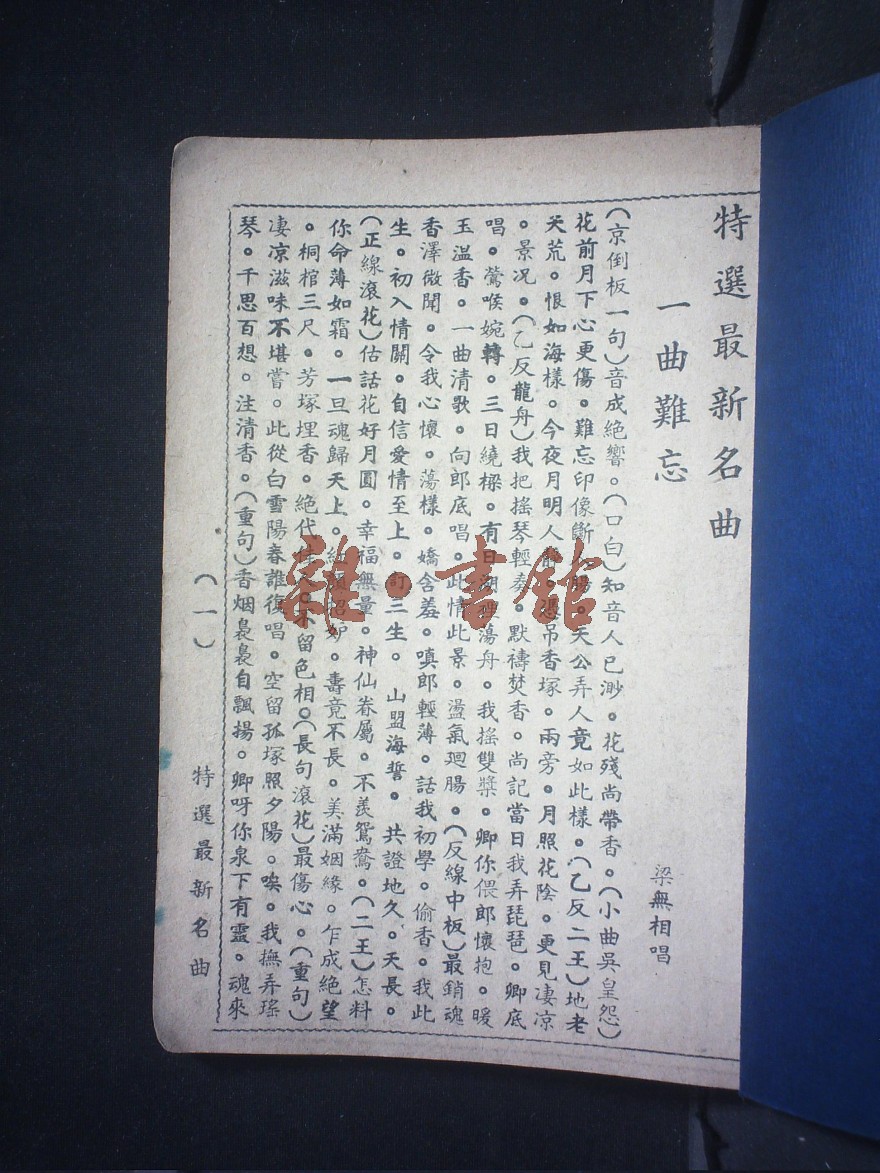 特選最新名曲
一曲難忘
梁無相唱
（京倒板一句）音成絕響。（口白）知音人已渺。花殘尚帶香。（小曲吳皇怨）
花前月下心更傷。難忘印像斷人腸。天公弄人竟如此樣。（乙反二王）地老
天荒。恨如海樣。今夜月明人靜。憑吊香塚。兩旁。月照花陰。更見凄凉
。景况。（乙反龍舟）我把搖琴輕奏。默禱焚香。尚記當日我弄琵琶。卿底
唱。鶯喉婉轉。三日繞樑。有日湖裡蕩舟。我搖雙槳。卿你偎郎懷抱。暖
玉温香。一曲清歌。向郎底唱。此情此景。盪氣廻腸。（反線中板）最銷魂
香澤微聞。令我心懷。蕩樣。嬌含羞。嗔郎輕薄。話我初學。偷香。我此
生。初入情關。自信愛情至上。訂三生。山盟海誓。共證地久。天長。
（正線滾花）估話花好月圓。幸福無量。神仙眷屬。不羨鴛鴦。（二王）怎料
你命薄如霜。一旦魂歸天上。紅顏招妒。壽竟不長。美滿姻緣。乍成絕望
。桐棺三尺。芳塚埋香。絕代佳人。不留色相。（長句滾花）最傷心。（重句）
凄凉滋味不堪嘗。此從白雪陽春誰復唱。空留孤塚照夕陽。唉。我撫弄瑤
琴。千思百想。注清香。（重句）香烟裊裊自飄揚。卿呀你泉下有靈。魂來
（一）
特選最新名曲
雜·書館